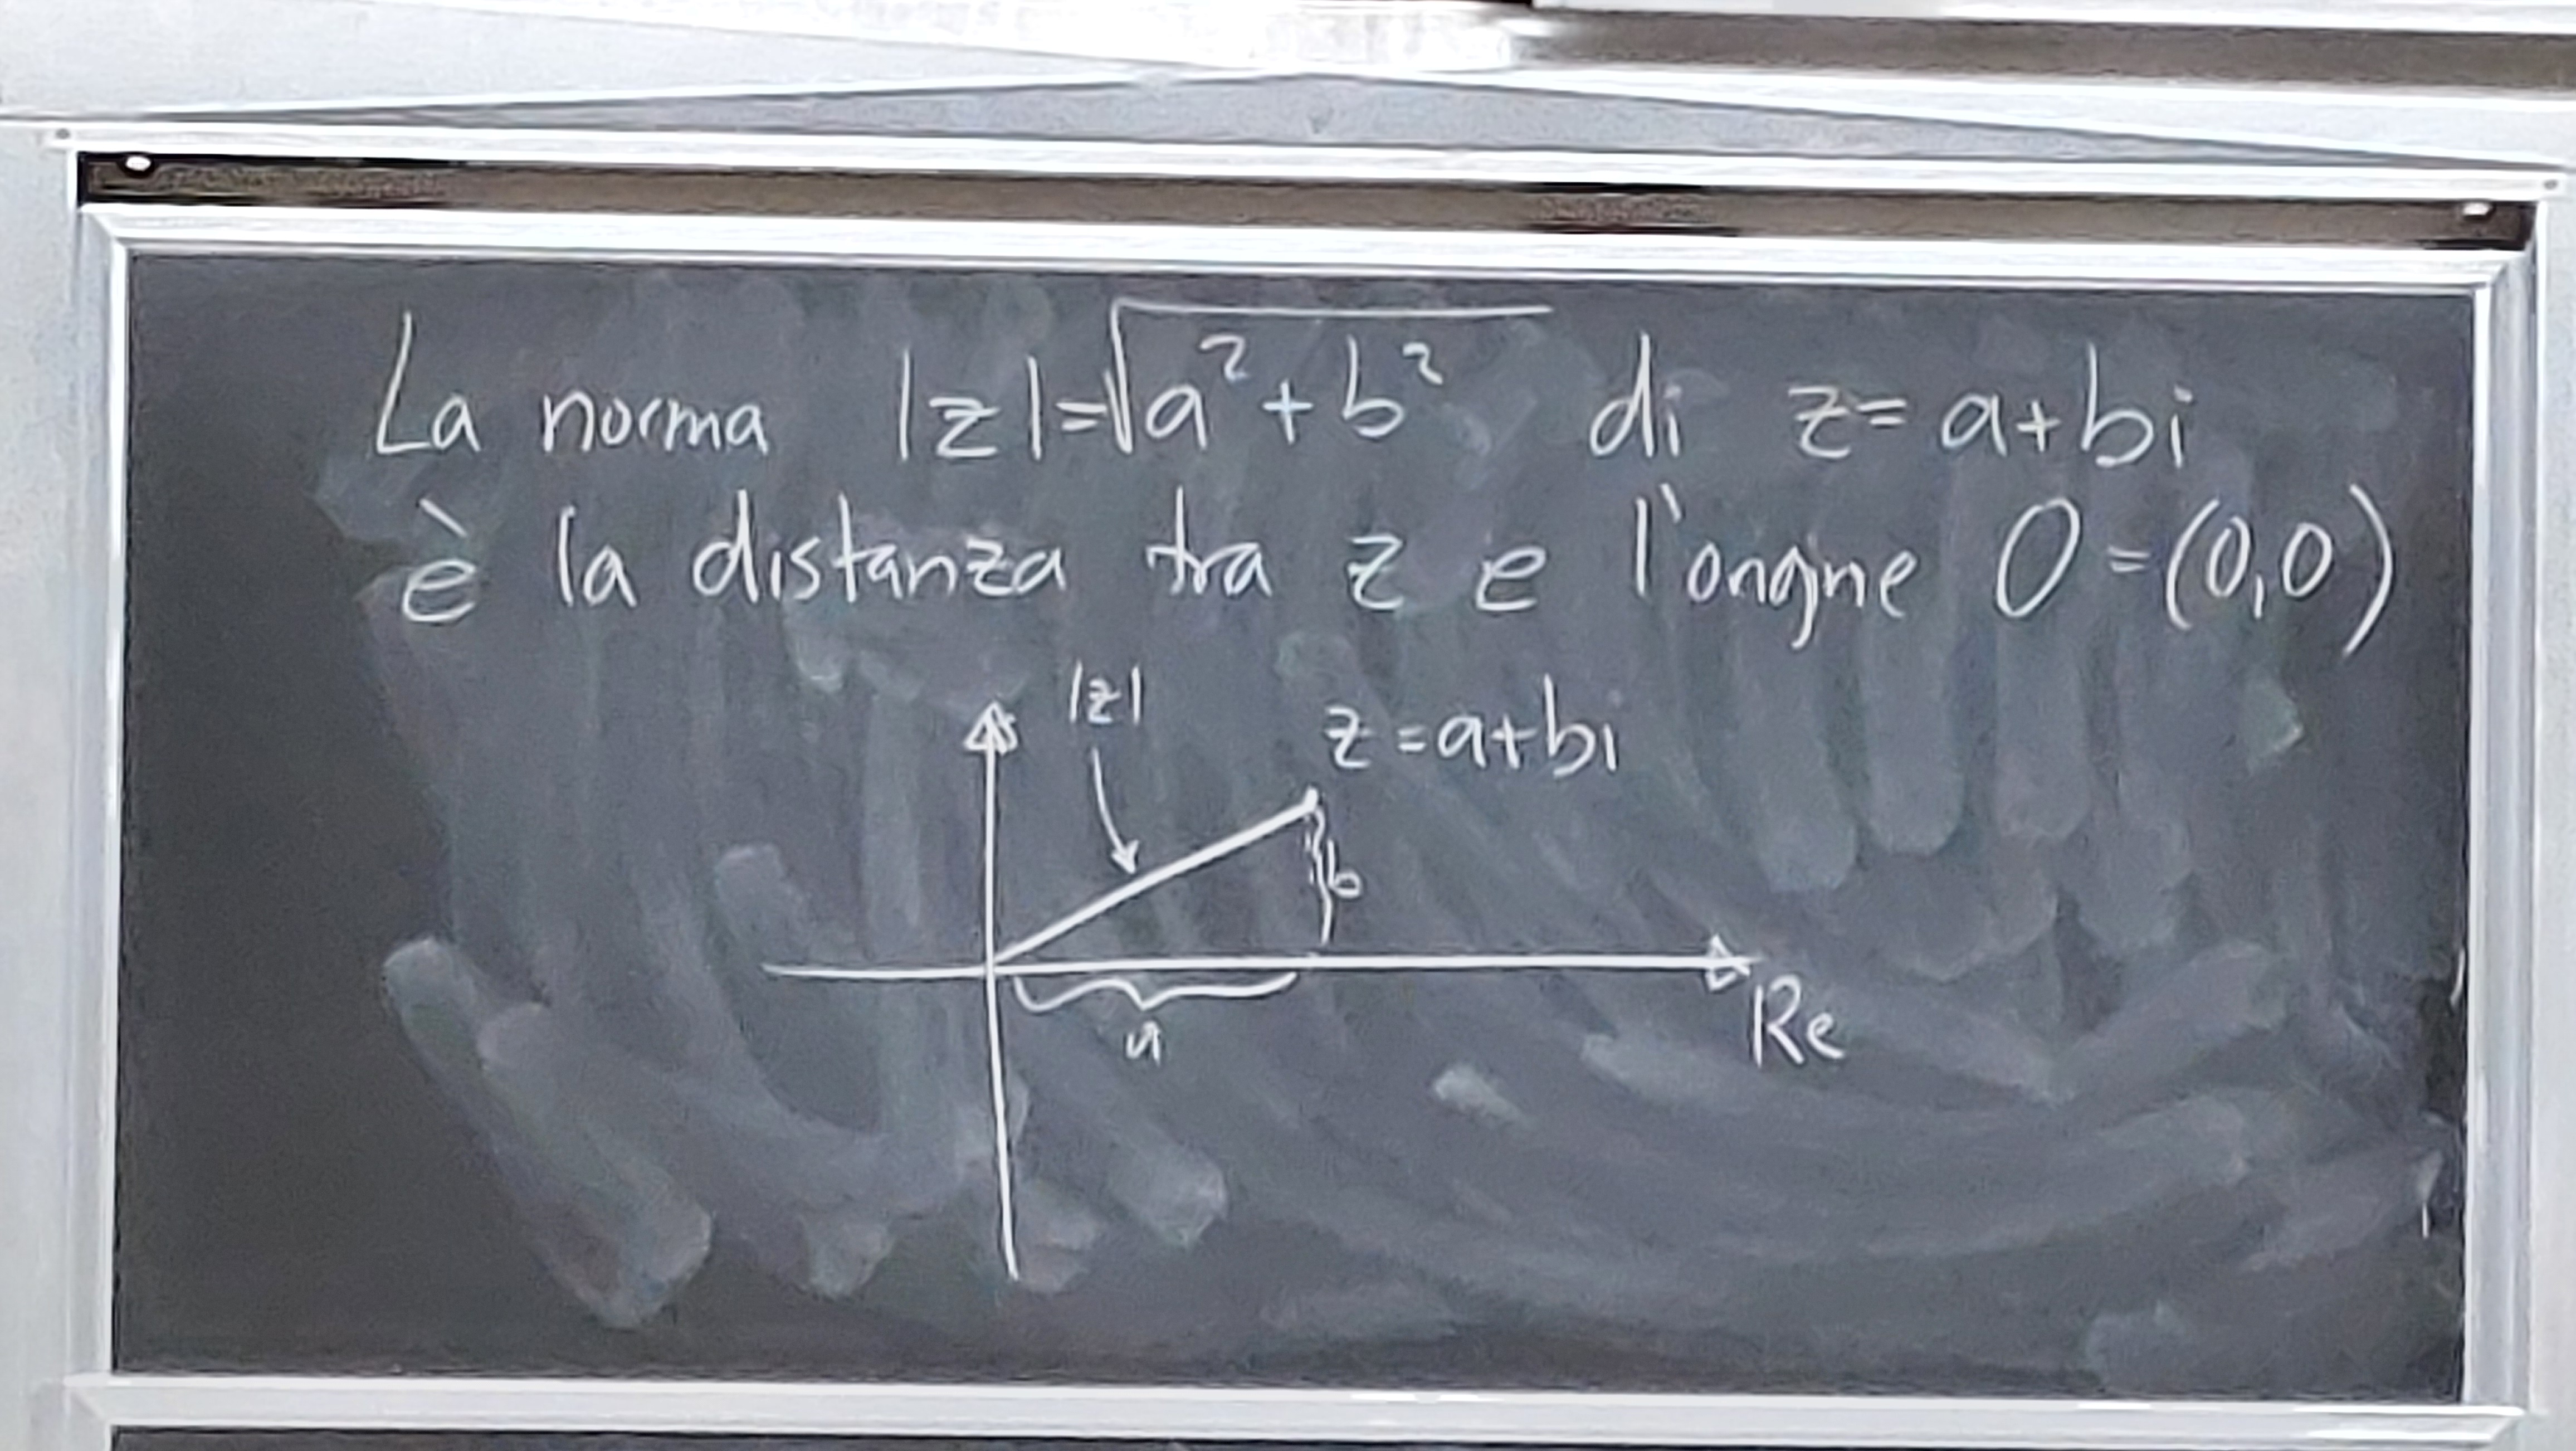 La norma |z|=√a²+b² di z=a+bi
è la distanza tra z e l'origine 0=(0,0)
|z|
z=a+bi
b
a
Re